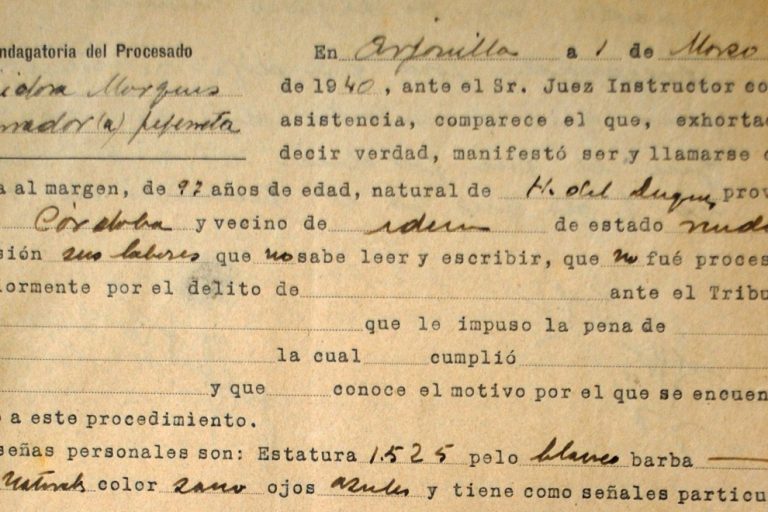 ndagatoria del Procesado
En Arjonilla a 1 de Marzo
idora Marques
de 1940, ante el Sr. Juez Instructor co
rador(a)
asistencia, comparece el que, exhorta
decir verdad, manifestó ser y llamarse
a al margen, de 92 años de edad, natural de H. del Duque, prov
Córdoba y vecino de idem de estado viuda
sión sus labores que no sabe leer y escribir, que no fué proces
iormente por el delito de ante el Tribu
que le impuso la pena de
la cual cumplió
y que conoce el motivo por el que se encuen
o a este procedimiento.
señas personales son: Estatura 1.525 pelo blanco barba —
natural color sano ojos azules y tiene como señales particu